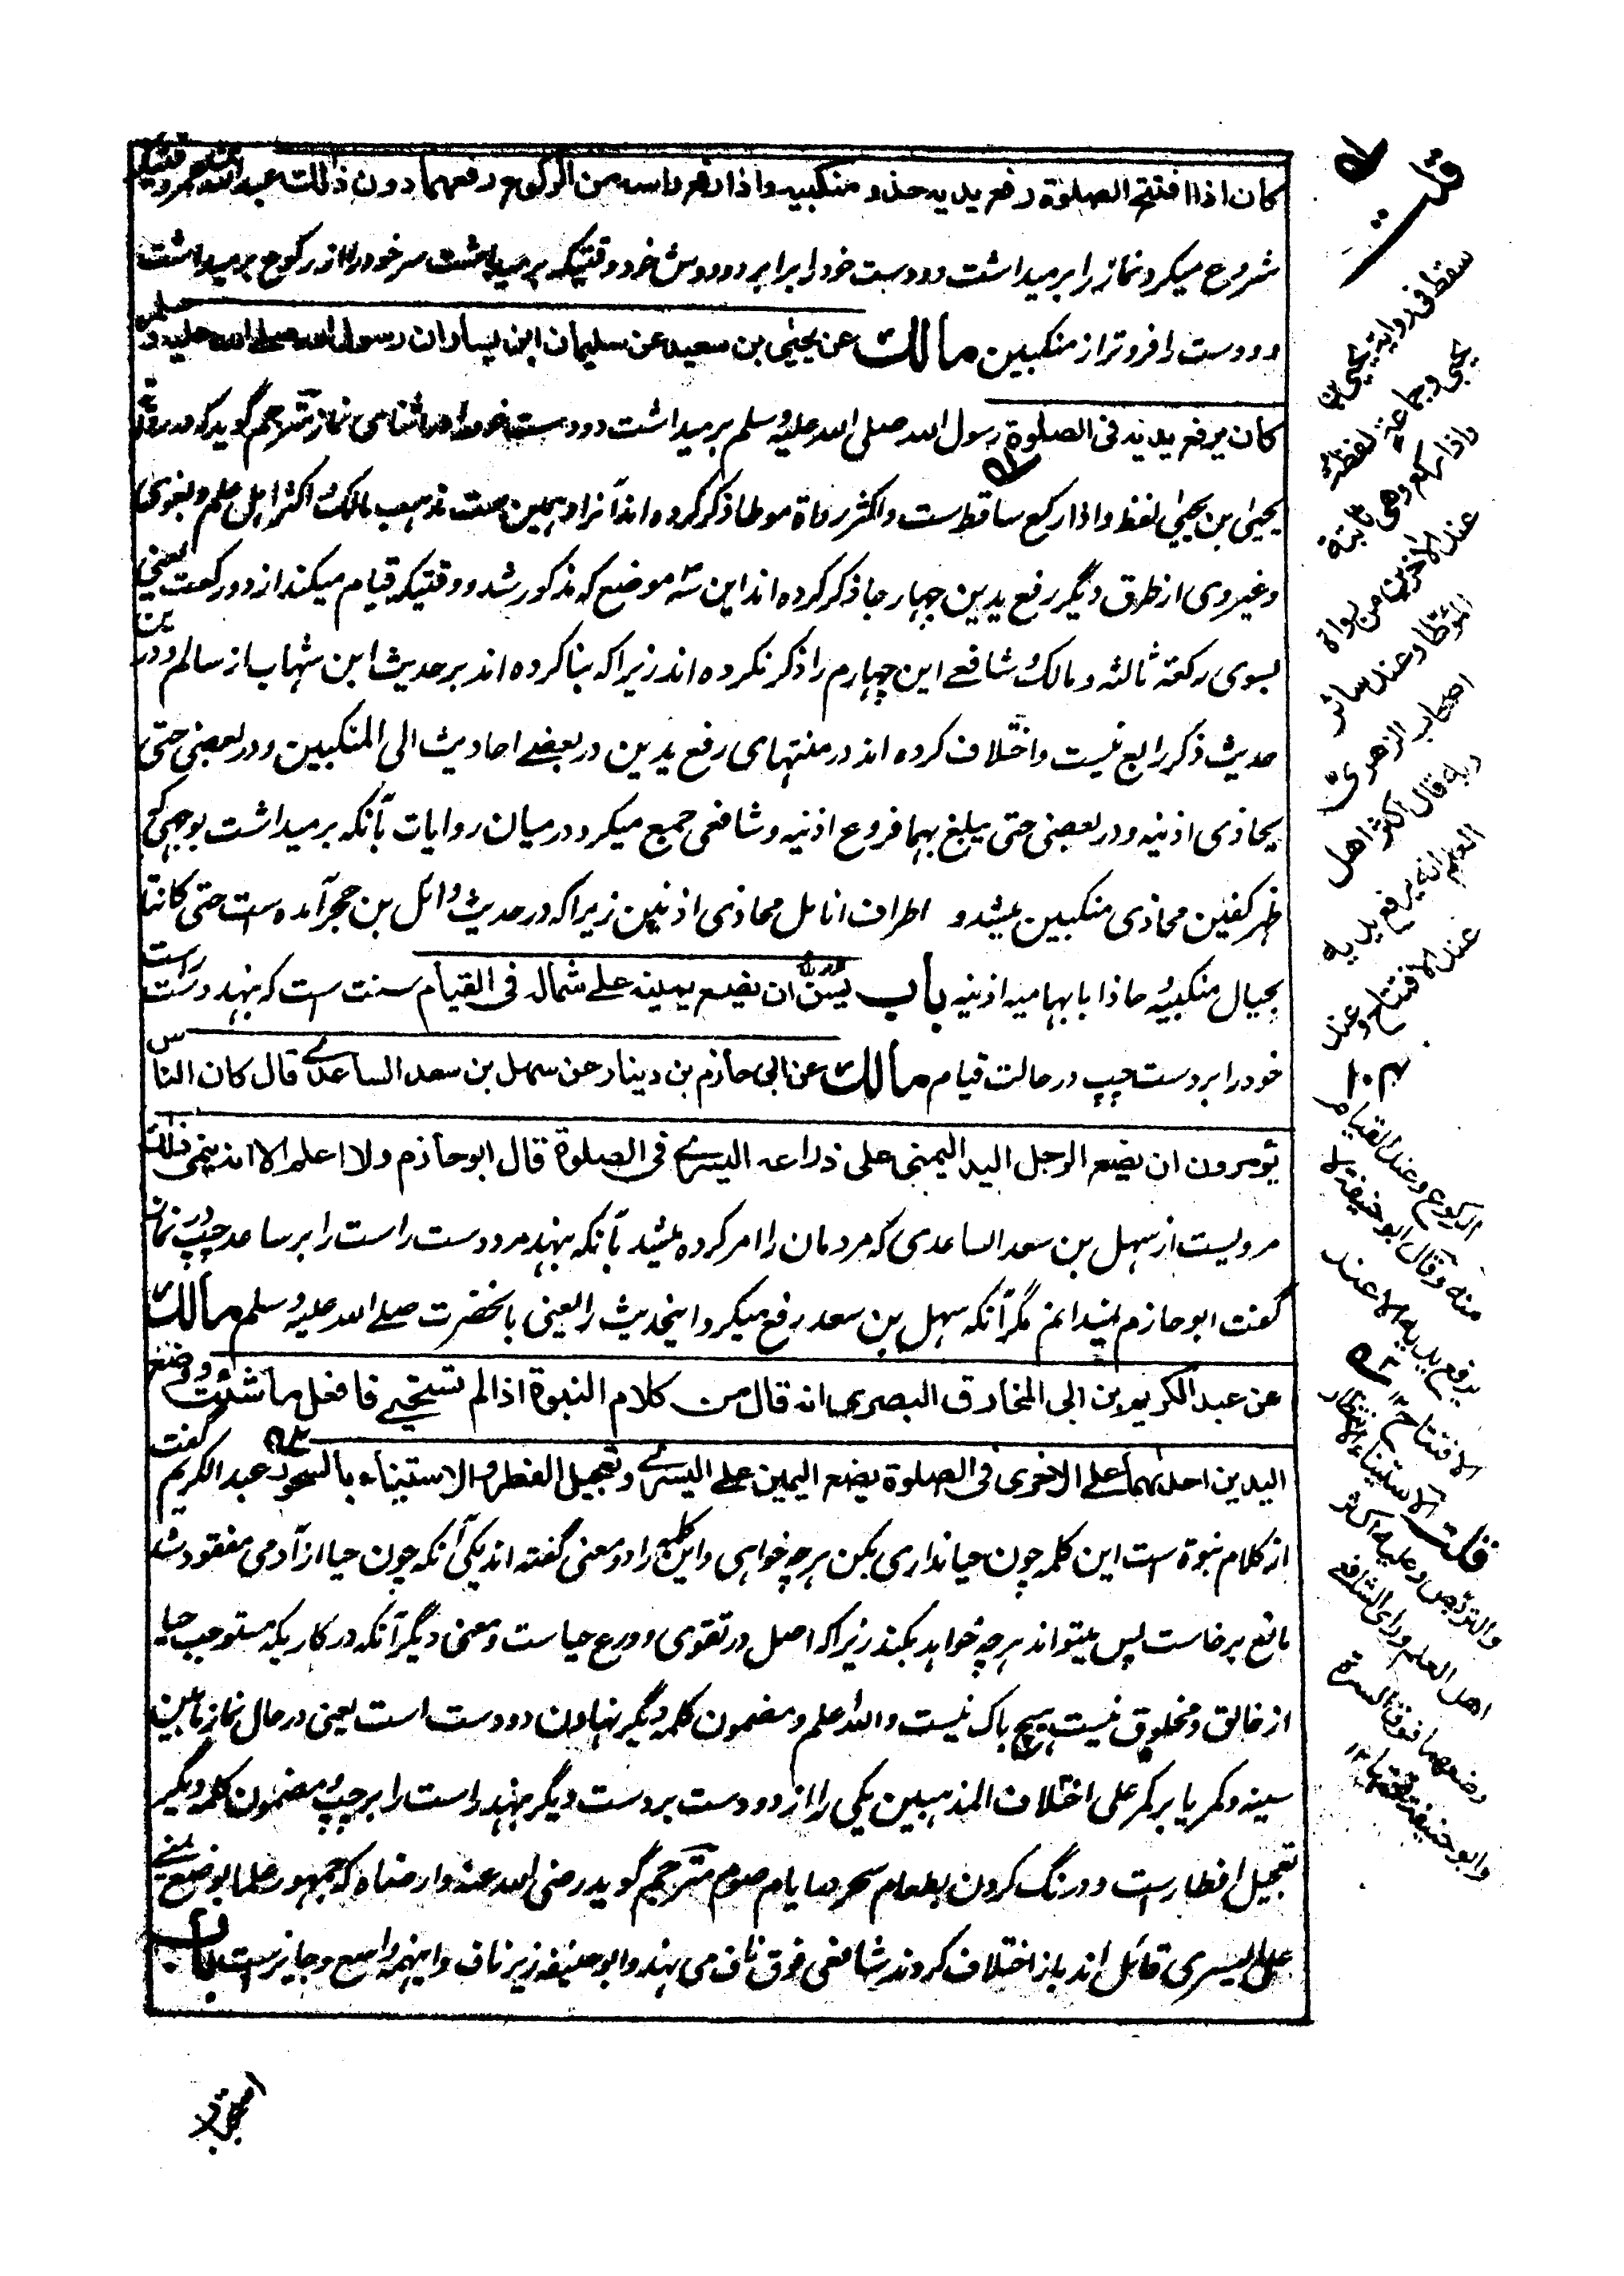 كان اذا افتتح الصلوة رفع يديه حذو منكبيه واذا رفع راسه من الركوع رفعهما دون ذلك عبد الله بن عمر وقتيكه
شروع میکرد نماز را برمیداشت دودست خود را برابر دودوش خود وقتیکه برمیداشت سر خود را از رکوع برمیداشت
دودست را فروتر از منکبین مالك عن يحيى بن سعيد عن سليمان ابن يسار ان رسول الله صلى الله عليه وسلم
كان يرفع يديه فى الصلوة رسول الله صلی الله علیه وسلم برمیداشت دودست خود را در اثنای نماز مترجم گوید که در روایت
یحیی بن یحیی لفظ واذا رکع ساقط ست واکثر رواة موطا ذکر کرده اند آنرا وهمین ست مذهب مالک واکثر اهل علم وبغوی
وغیروی از طرق دیگر رفع یدین چهار جا ذکر کرده اند این سه موضع که مذکور شد و وقتیکه قیام میکند از دو رکعت یعنی
بسوی رکعة ثالثه ومالک وشافعی این چهارم را ذکر نکرده اند زیراکه بنا کرده اند بر حدیث ابن شهاب از سالم ودرین
حدیث ذکر رابع نیست واختلاف کرده اند در منتهای رفع یدین در بعضے احادیث الی المنکبین ودر بعضی حتی
یحاذی اذنیه ودر بعضی حتی یبلغ بهما فروع اذنیه وشافعی جمع میکرد درمیان روایات بآنکه برمیداشت بوجهی که
ظهر کفین محاذی منکبین میشد و اطراف انامل محاذی اذنین زیراکه در حدیث وائل بن حجر آمده ست حتی کانتا
بحیال منکبیه حاذا بابهامیه اذنیه باب يسن ان يضع يمينه على شماله فى القيام سنت ست که بنهد دست راست
خود را بر دست چپ در حالت قیام مالك عن ابى حازم بن دينار عن سهل بن سعد الساعدى قال كان الناس
يؤمرون ان يضع الرجل اليد اليمنى على ذراعه اليسرى فى الصلوة قال ابو حازم ولا اعلم الا انه ينمى ذلك
مرویست از سهل بن سعد الساعدی که مردمان را امر کرده میشد بآنکه بنهد مرد دست راست را بر ساعد چپ در نماز
گفت ابو حازم نمیدانم مگر آنکه سهل بن سعد رفع میکرد اینحدیث را یعنی بآنحضرت صلے الله علیه وسلم مالك
عن عبد الكريم بن ابى المخارق البصرى انه قال من كلام النبوة اذا لم تستحى فافعل ما شئت ووضع
اليدين احداهما على الاخرى فى الصلوة يضع اليمين على اليسرى وتعجيل الفطر والاستيناء بالسحور عبد الکریم گفت
از کلام نبوة ست این کلمه چون حیا نداری بکن هرچه خواهی واین کلمه را دو معنی گفته اند یکی آنکه چون حیا از آدمی مفقود شد
مانع برخاست پس میتواند هرچه خواهد بکند زیراکه اصل در تقوی و ورع حیا ست و معنی دیگر آنکه در کاریکه مستوجب حیا
از خالق ومخلوق نیست هیچ باک نیست والله اعلم ومضمون کلمه دیگر نهادن دودست است یعنی در حال نماز مابین
سینه وکمر یا برکمر علی اختلاف المذهبین یکی را از دودست بر دست دیگر بنهد راست را بر چپ ومضمون کلمه دیگر
تعجیل افطار ست ودرنگ کردن بطعام سحر در ایام صوم مترجم گوید رضی الله عنه وارضاه که جمهور علما بوضع یمنی
علی الیسری قائل اند باز اختلاف کردند شافعی فوق ناف می نهد وابو حنیفه زیر ناف واینهمه واسع وجایز ست باب
قلت
سقط فى رواية يحيى بن
يحيى وجماعة لفظة
واذا ركع وهى ثابتة
عند الاخرين من رواة
المؤطا وعند سائر
اصحاب الزهرى
وبه قال اكثر اهل
العلم انه يرفع يديه
عند الافتتاح وعند
الركوع وعند القيام
منه وقال ابو حنيفة لا
يرفع يديه الا عند
الافتتاح ١٢
قلت الاستيناء الانتظار
والتربص وعليه اكثر
اهل العلم وراى الشافعى
وضعهما فوق السرة
وابو حنيفة تحتها ١٢